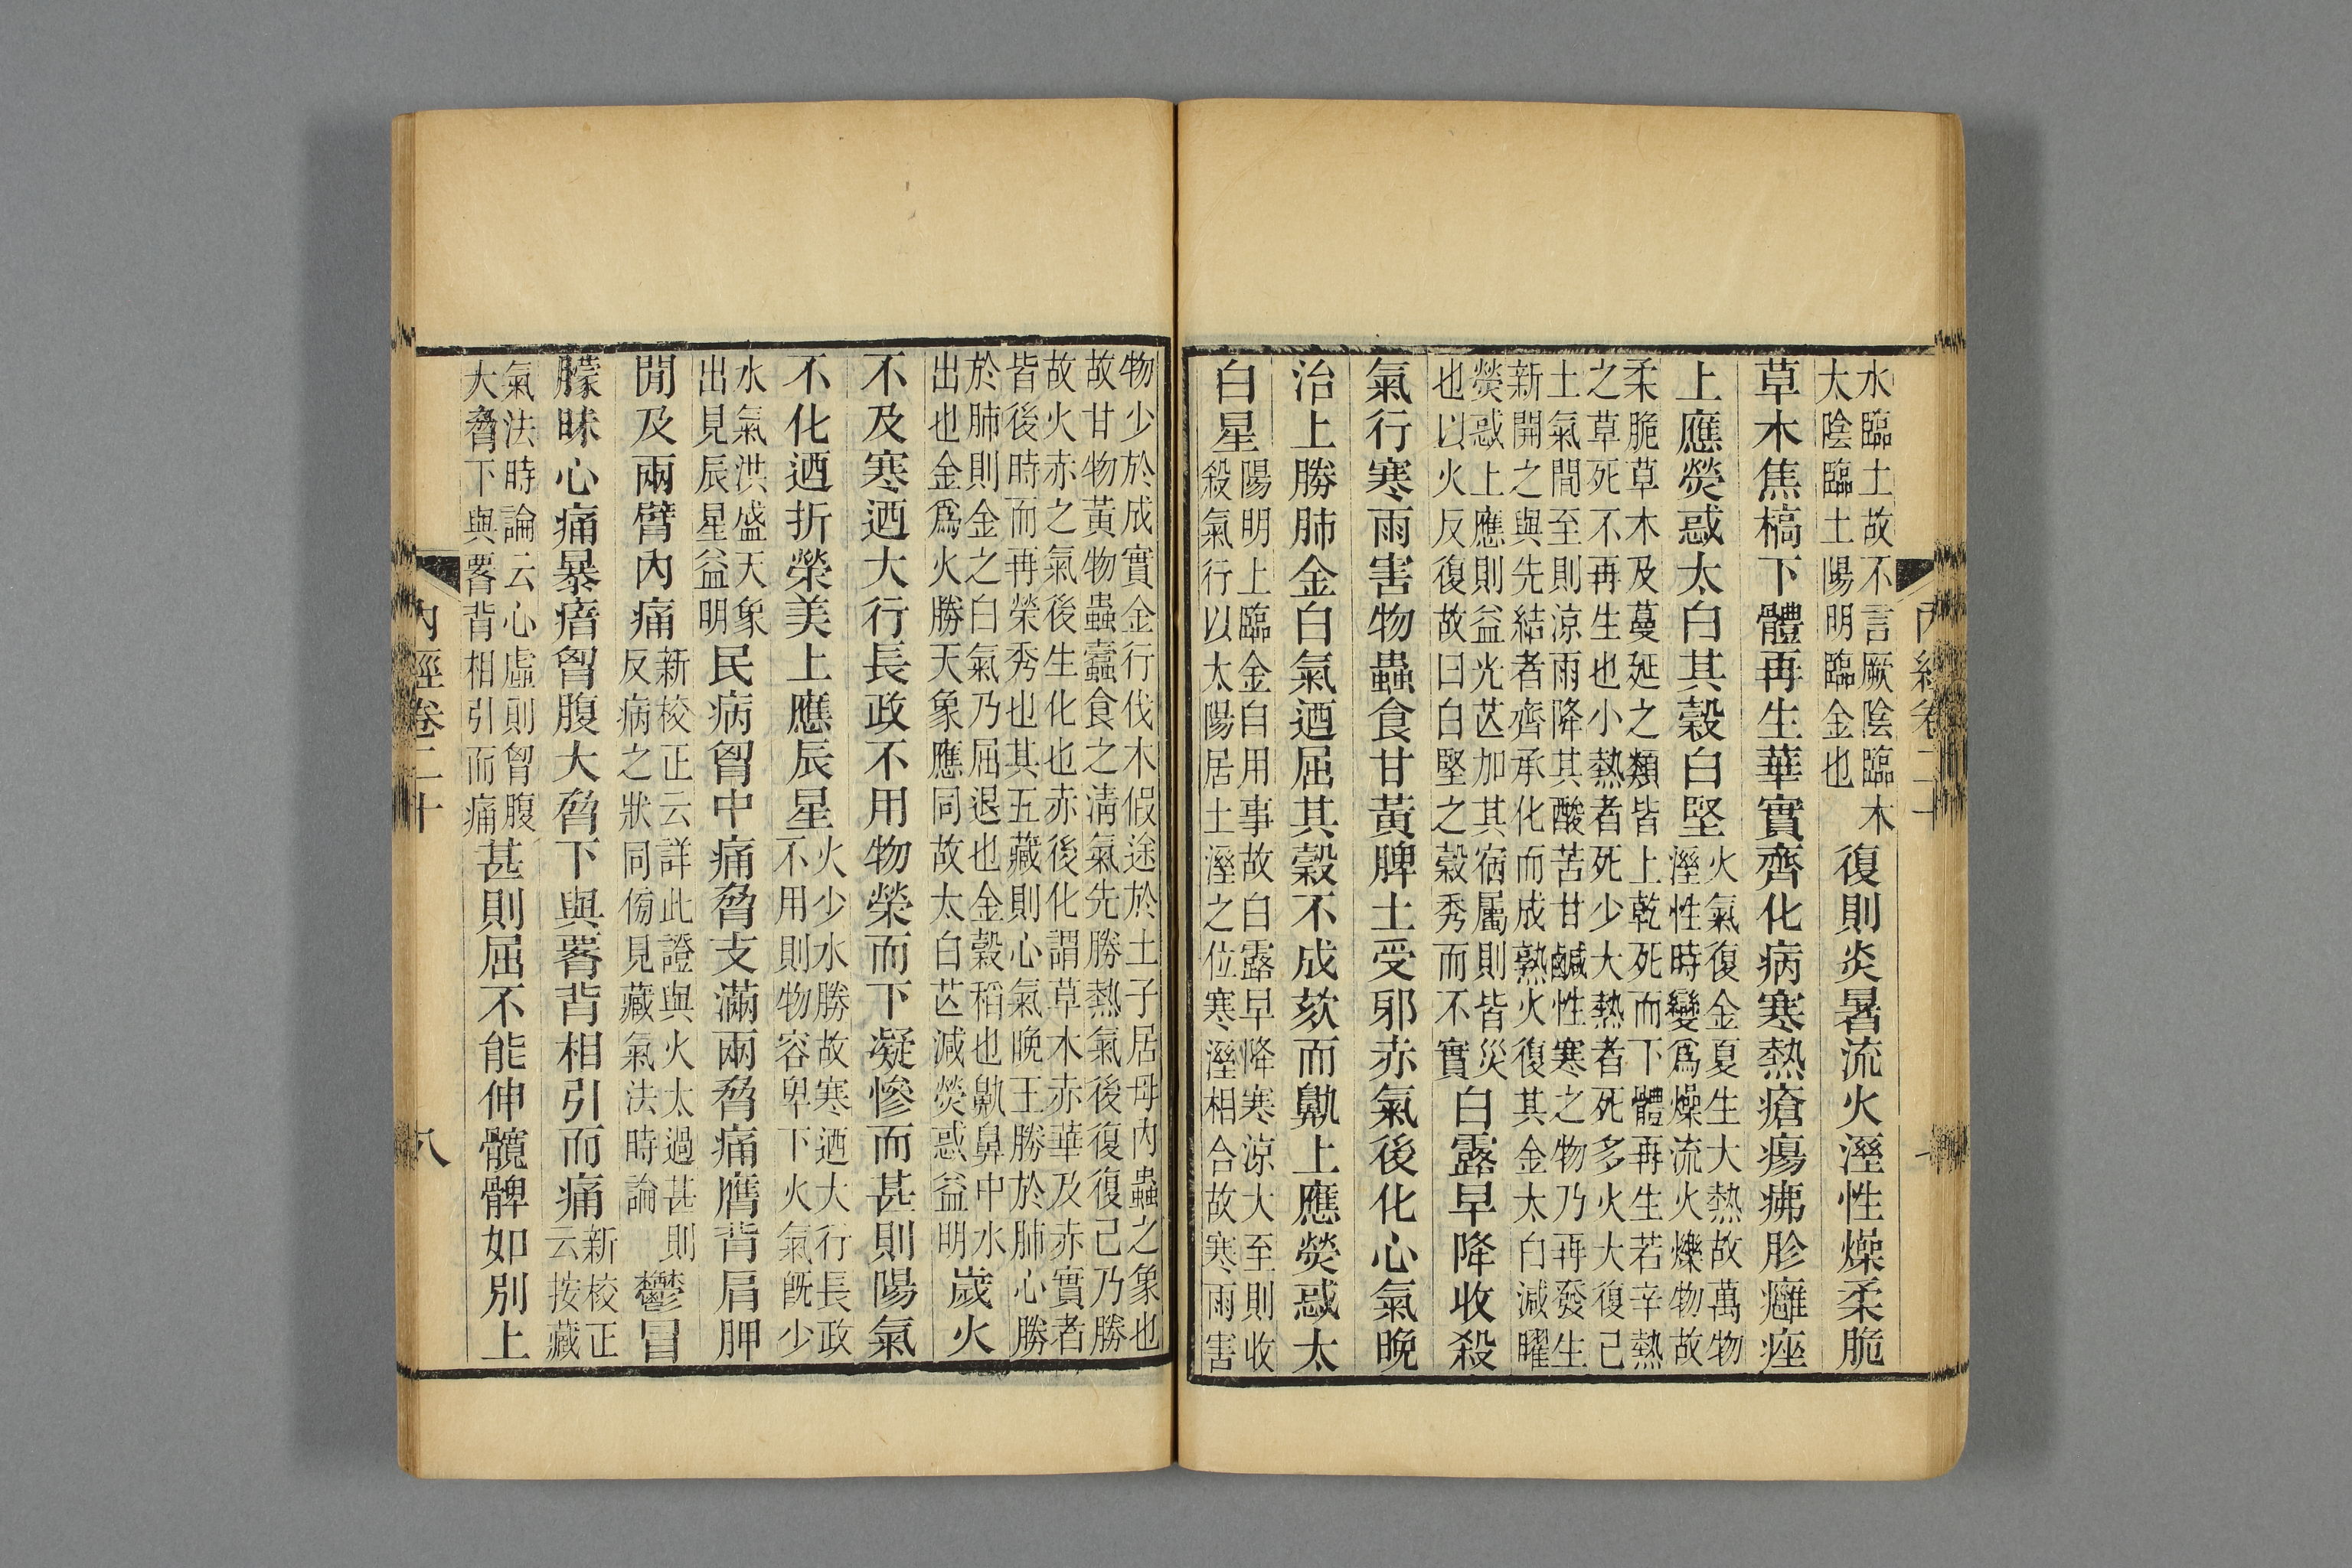 水臨土故不言厥陰臨木
太陰臨土陽明臨金也
復則炎暑流火溼性燥柔脆
草木焦槁下體再生華實齊化病寒熱瘡瘍疿胗癰痤
上應熒惑太白其穀白堅
火氣復金夏生大熱故萬物
溼性時變爲燥流火爍物故
柔脆草木及蔓延之類皆上乾死而下體再生若辛熱
之草死不再生也小熱者死少大熱者死多火大復已
土氣間至則涼雨降其酸苦甘鹹性寒之物乃再發生
新開之與先結者齊承化而成熟火復其金太白減曜
熒惑上應則益光芒加其宿屬則皆災
也以火反復故曰白堅之穀秀而不實
白露早降收殺
氣行寒雨害物蟲食甘黃脾土受邪赤氣後化心氣晚
治上勝肺金白氣迺屈其穀不成欬而鼽上應熒惑太
白星
陽明上臨金自用事故白露早降寒涼大至則收
殺氣行以太陽居土溼之位寒溼相合故寒雨害
物少於成實金行伐木假途於土子居母內蟲之象也
故甘物黃物蟲蠹食之淸氣先勝熱氣後復復已乃勝
故火赤之氣後生化也赤後化謂草木赤華及赤實者
皆後時而再榮秀也其五藏則心氣晚王勝於肺心勝
於肺則金之白氣乃屈退也金穀稻也鼽鼻中水
出也金爲火勝天象應同故太白芒減熒惑益明
歲火
不及寒迺大行長政不用物榮而下凝慘而甚則陽氣
不化迺折榮美上應辰星
火少水勝故寒迺大行長政
不用則物容卑下火氣旣少
水氣洪盛天象
出見辰星益明
民病胷中痛脅支滿兩脅痛膺背肩胛
閒及兩臂內痛
新校正云詳此證與火太過甚則
反病之狀同傍見藏氣法時論
鬱冒
朦昧心痛暴瘖胷腹大脅下與䯒背相引而痛
新校正
云按藏
氣法時論云心虛則胷腹
大脅下與䯒背相引而痛
甚則屈不能伸髖髀如別上
內經卷二十
八